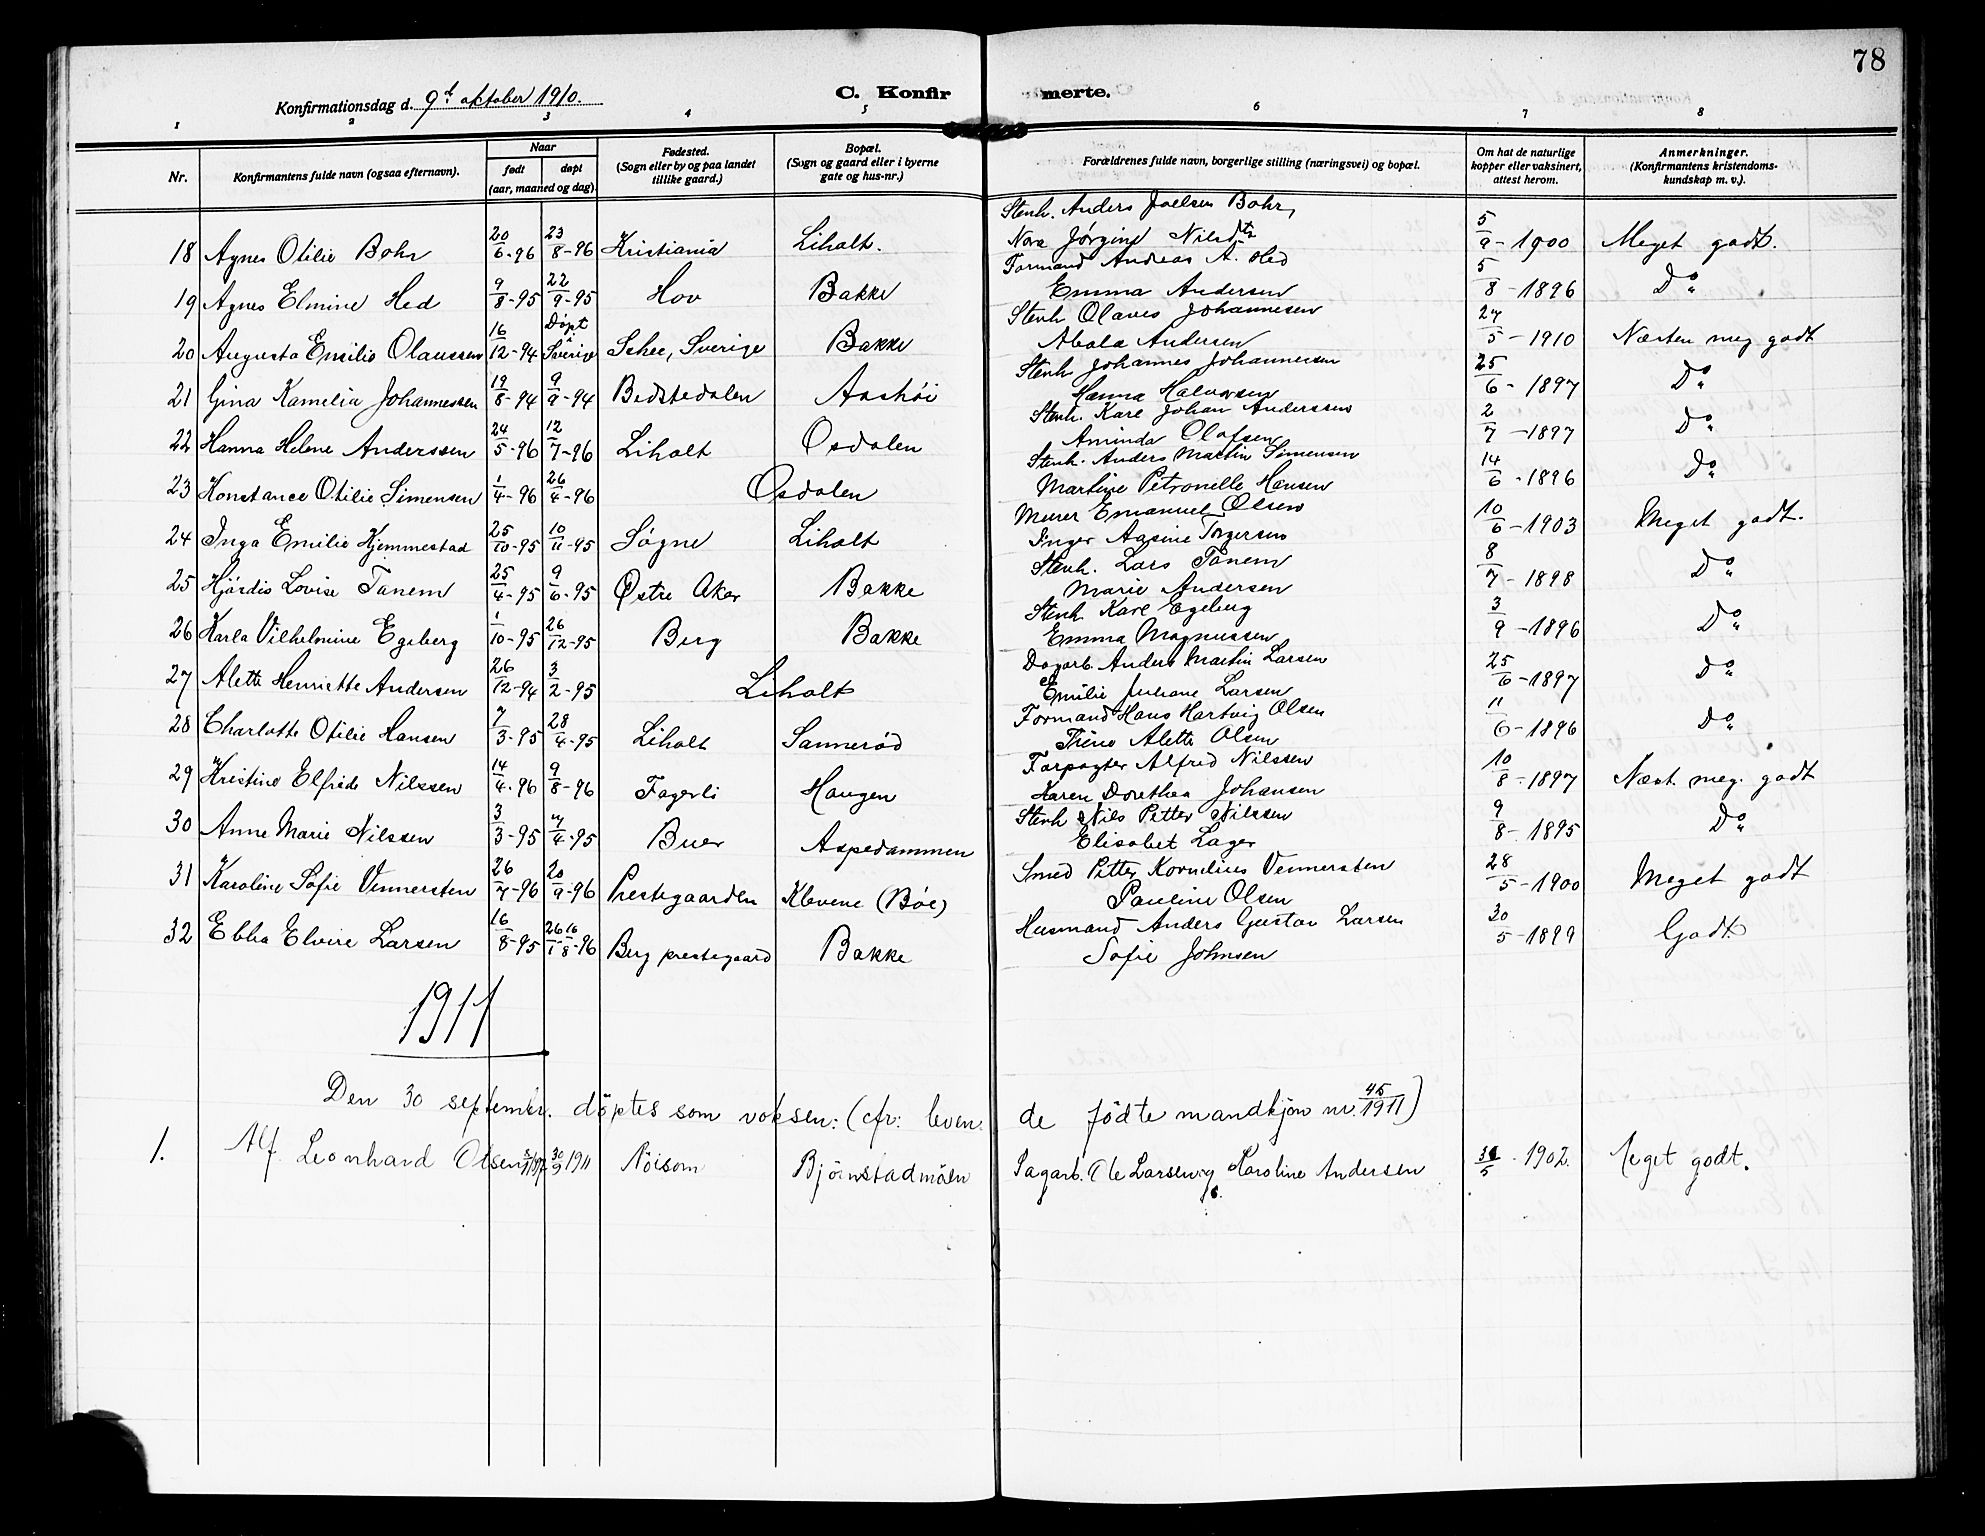 78
Konfirmationsdag d. 9d oktober 1910.
C. Konfirmerte.
1 2 3 4 5 6 7 8
Nr.
Konfirmantens fulde navn (ogsaa efternavn).
Naar
født
døpt
(aar, maaned og dag).
Fødested.
(Sogn eller by og paa landet
tillike gaard.)
Bopæl.
(Sogn og gaard eller i byerne
gate og hus-nr.)
Forældrenes fulde navn, borgerlige stilling (næringsvei) og bopæl.
Om hat de naturlige
kopper eller vaksinert,
attest herom.
Anmerkninger.
(Konfirmantens kristendoms-
kundskap m. v.).
18 Agnes Otilie Bohr 20/6-96 23/8-96 Kristiania Liholt. Stenh. Anders Joelsen Bohr, 5/9-1900 Meget godt.
Nora Jørgine Nilsdtr
19 Agnes Elmine Hed 9/8-95 22/9-95 Hov Bakke Formand Andreas A. Hed 5/8-1896 Do
Emma Andersen
20 Augusta Emilie Olaussen 16/12-94 Døpt i Sverige Schee, Sverige Bakke Stenh Olaves Johannesen 27/5-1910 Næsten meg godt
Abola Andersen
21 Gina Kamelia Johannessen 19/8-94 9/9-94 Bedstedalen Aashøi Stenh Johannes Johannessen 25/6-1897 Do
Hanna Halvorsen
22 Hanna Helene Anderssen 24/5-96 12/7-96 Liholt Osdalen Stenh. Karl Johan Anderssen 2/7-1897 Do
Aminda Olafsen
23 Konstance Otilie Simensen 1/4-96 26/4-96 Osdalen Stenh. Anders Martin Simensen 14/6-1896 Do
Martine Petronelle Hansen
24 Inga Emilie Hjemmestad 25/10-95 10/11-95 Søgne Liholt Murer Emanuel Olsen 10/6-1903 Meget godt.
Inger Aasine Torgersen
25 Hjørdis Lovise Tanem 25/4-95 9/6-95 Østre Aker Bakke Stenh. Lars Tanem 8/7-1898 Do
Marie Andersen
26 Karla Vilhelmine Egeberg 1/10-95 26/12-95 Berg Bakke Stenh Karl Egeberg 3/9-1896 Do
Emma Magnussen
27 Alette Henriette Andersen 26/12-94 3/2-95 Liholt Dagarb. Anders Martin Larsen 25/6-1897 Do
Emilie Juliane Larsen
28 Charlotte Otilie Hansen 7/3-95 28/4-95 Liholt Sannerød Formand Hans Hartvig Olsen 11/6-1896 Do
Trine Alette Olsen
29 Kristine Elfride Nilssen 14/4-96 9/8-96 Fagerli Haugen Forpagter Alfred Nilssen 10/8-1897 Næst. meg. godt
Karen Dorethea Johansen
30 Anne Marie Nilssen 3/3-95 7/4-95 Buer Aspedammen Stenh Nils Petter Nilssen 9/8-1895 Do
Elisabet Lager
31 Karoline Sofie Vennersten 26/7-96 20/9-96 Prestegaarden Klevene (Bøe) Smed Petter Kornelius Vennersten 28/5-1900 Meget godt
Pauline Olsen
32 Ebba Elvire Larsen 16/8-95 16/8-96 Berg prestegaard Bakke Husmand Anders Gustav Larsen 30/5-1899 Godt
Sofie Johnsen
1911
Den 30 september. døptes som voksen: (cfr: levende fødte mandkjøn nr. 45/1911)
1. Alf Leonhard Olsen 30/9 1911 Nöisom Björnstadmöen Sagarb. Ole Larsen og Karoline Andersen 31/5-1902. Meget godt.